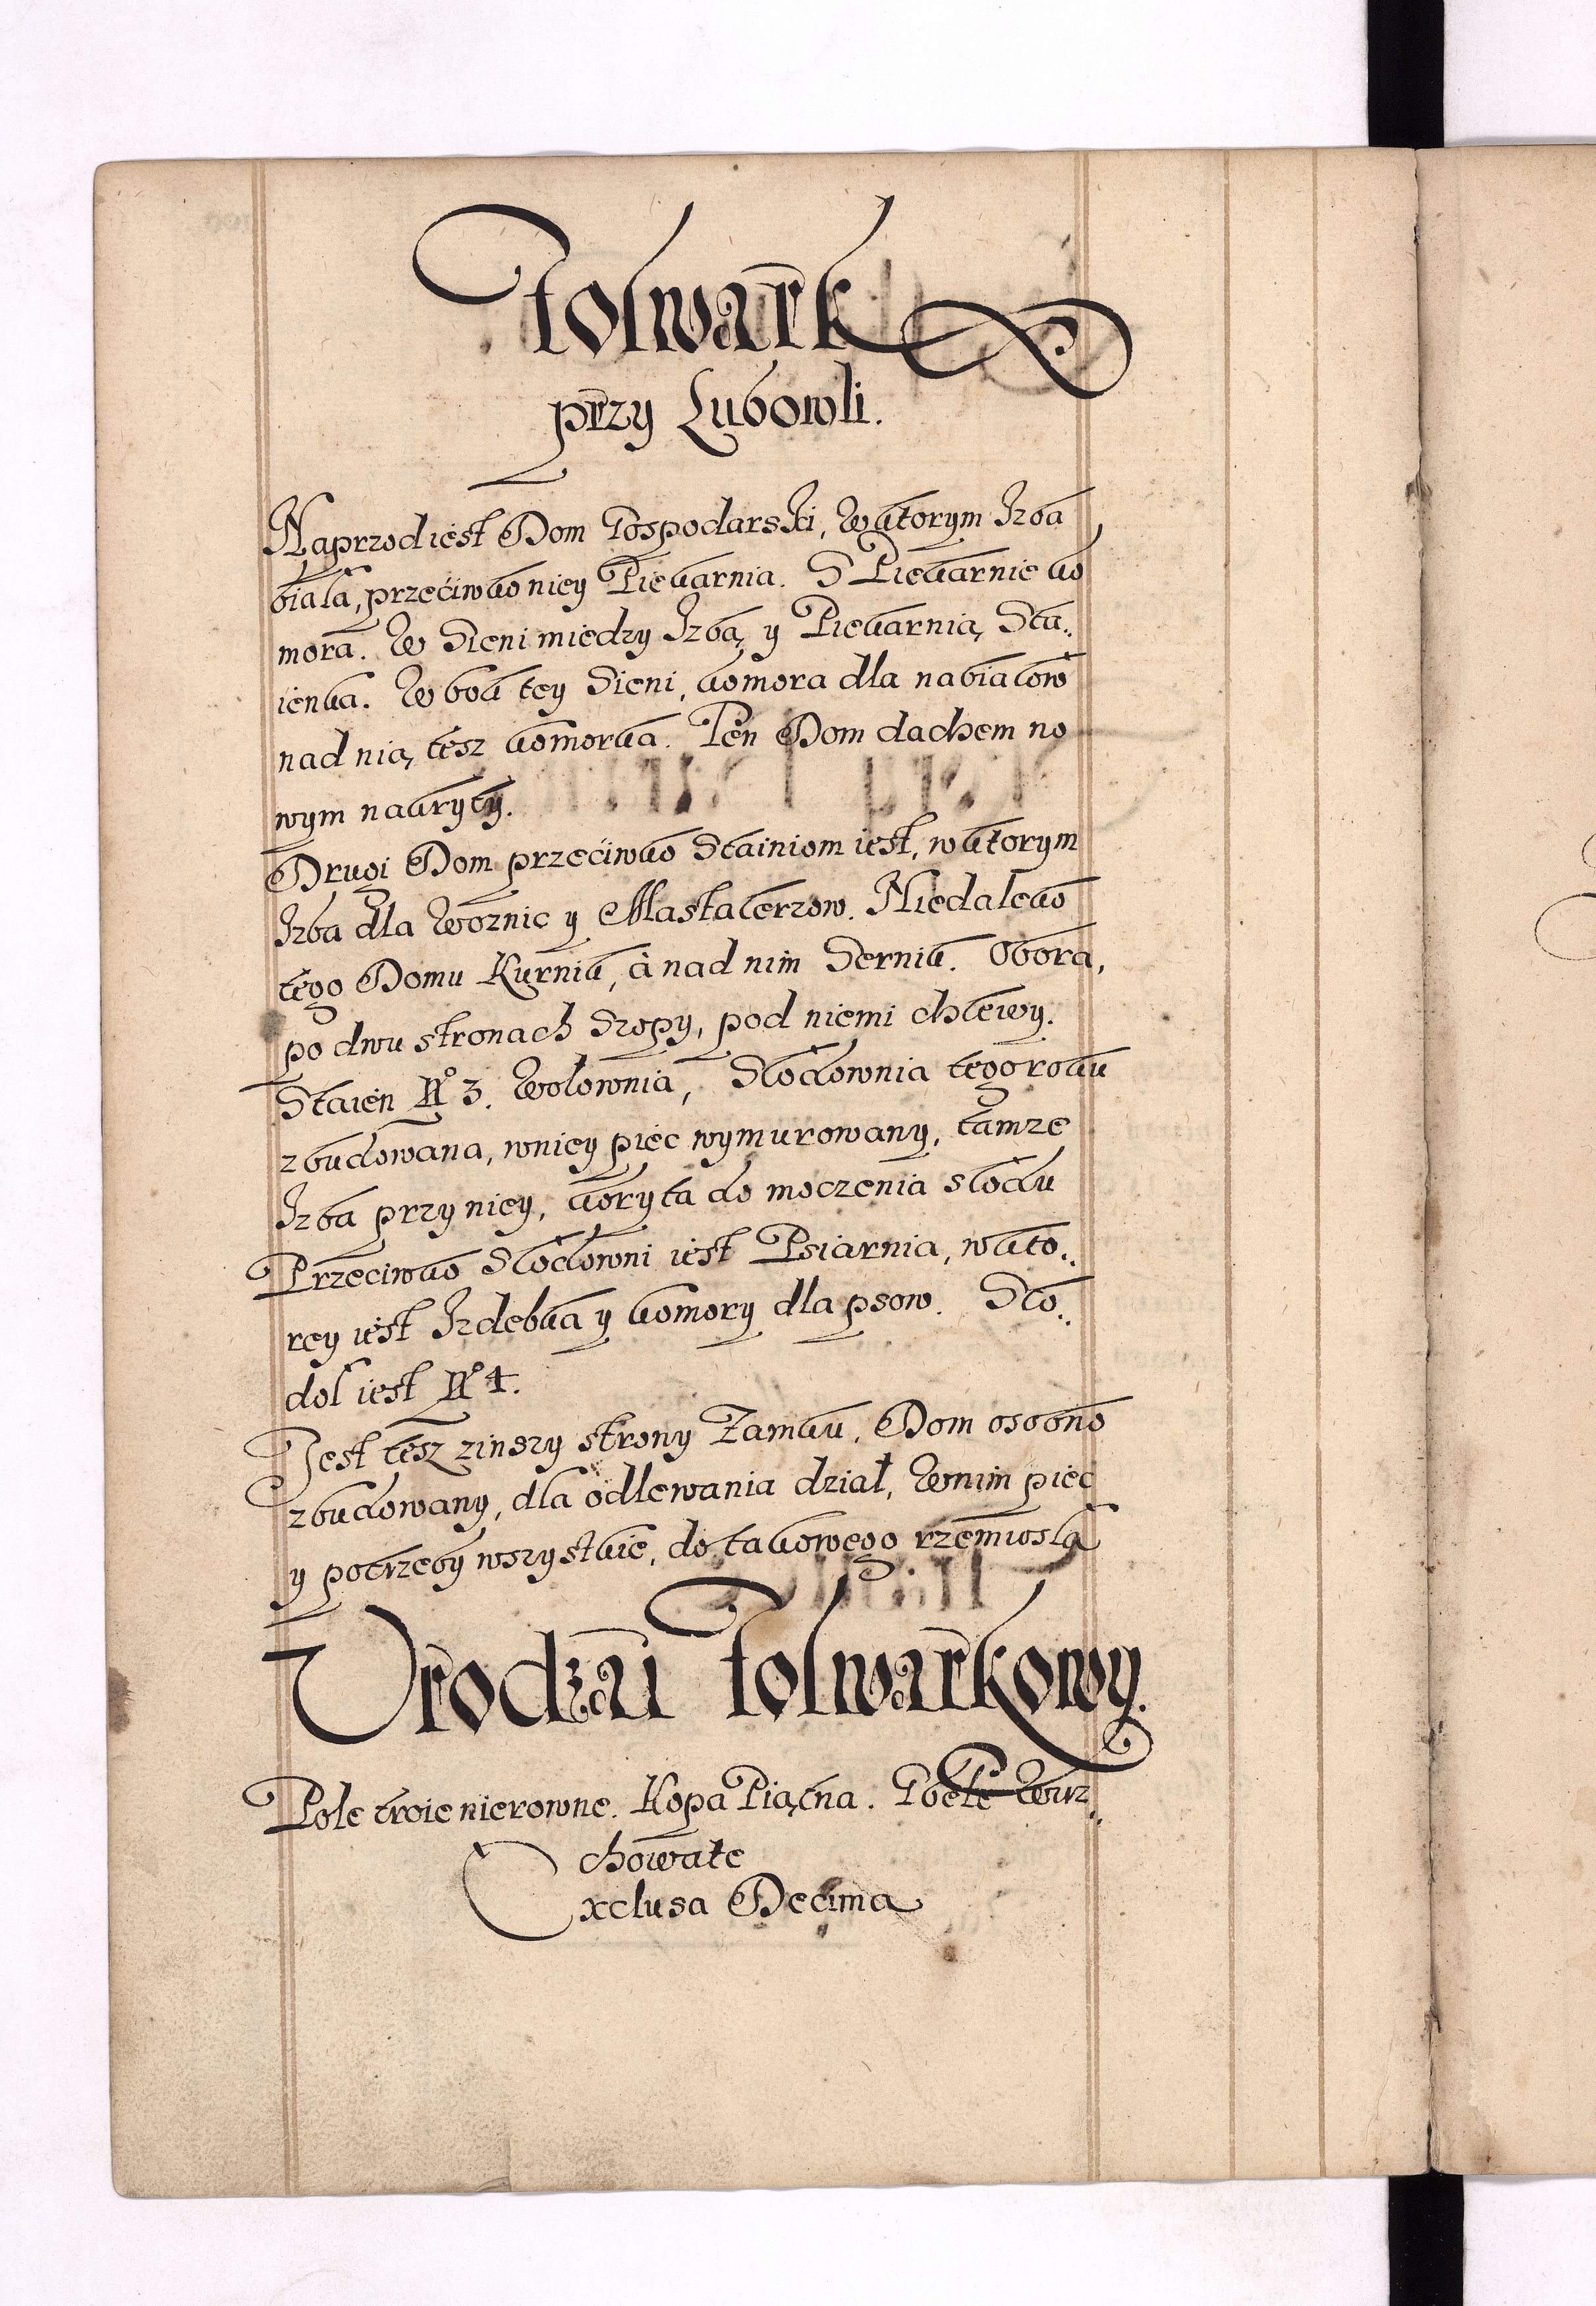 Folwark
przy Lubowli.
Naprzod iest Dom Gospodarski, W ktorym Izba
biała, przeciwko niey Piekarnia. S Piekarnie ko
mora. W Sieni miedzy Izbą y Piekarnią Sta„
ienka. W bok tey Sieni, komora dla nabiałow
nad nią tesz komorka. Ten Dom dachem no
wym nakryty.
Drugi Dom przeciwko Stainiom iest, w ktorym
Izba dla Woznic y Mastalerzow. Niedaleko
tego Domu Kurnik, à nad nim Sernik. Obora,
po dwu stronach Szopy, pod niemi chlewy.
Staien No 3. Wołownia, Słodownia tego roku
zbudowana, wniey piec wymurowany, tamze
Izba przy niey, koryta do moczenia słodu
Przeciwko Słodowni iest Psiarnia, w kto„
rey iest Izdebka y komory dla psow. Sto„
doł iest No 4.
Jest tesz zinszy strony Zamku, Dom osobno
zbudowany, dla odlewania dział, Wnim piec
y potrzeby wszystkie, do takowego rzemiosła
Vrodzai Folwarkowy.
Pole troie nierowne. Kopa Piątna. Pole Wirz„
chowate
Exclusa Decima